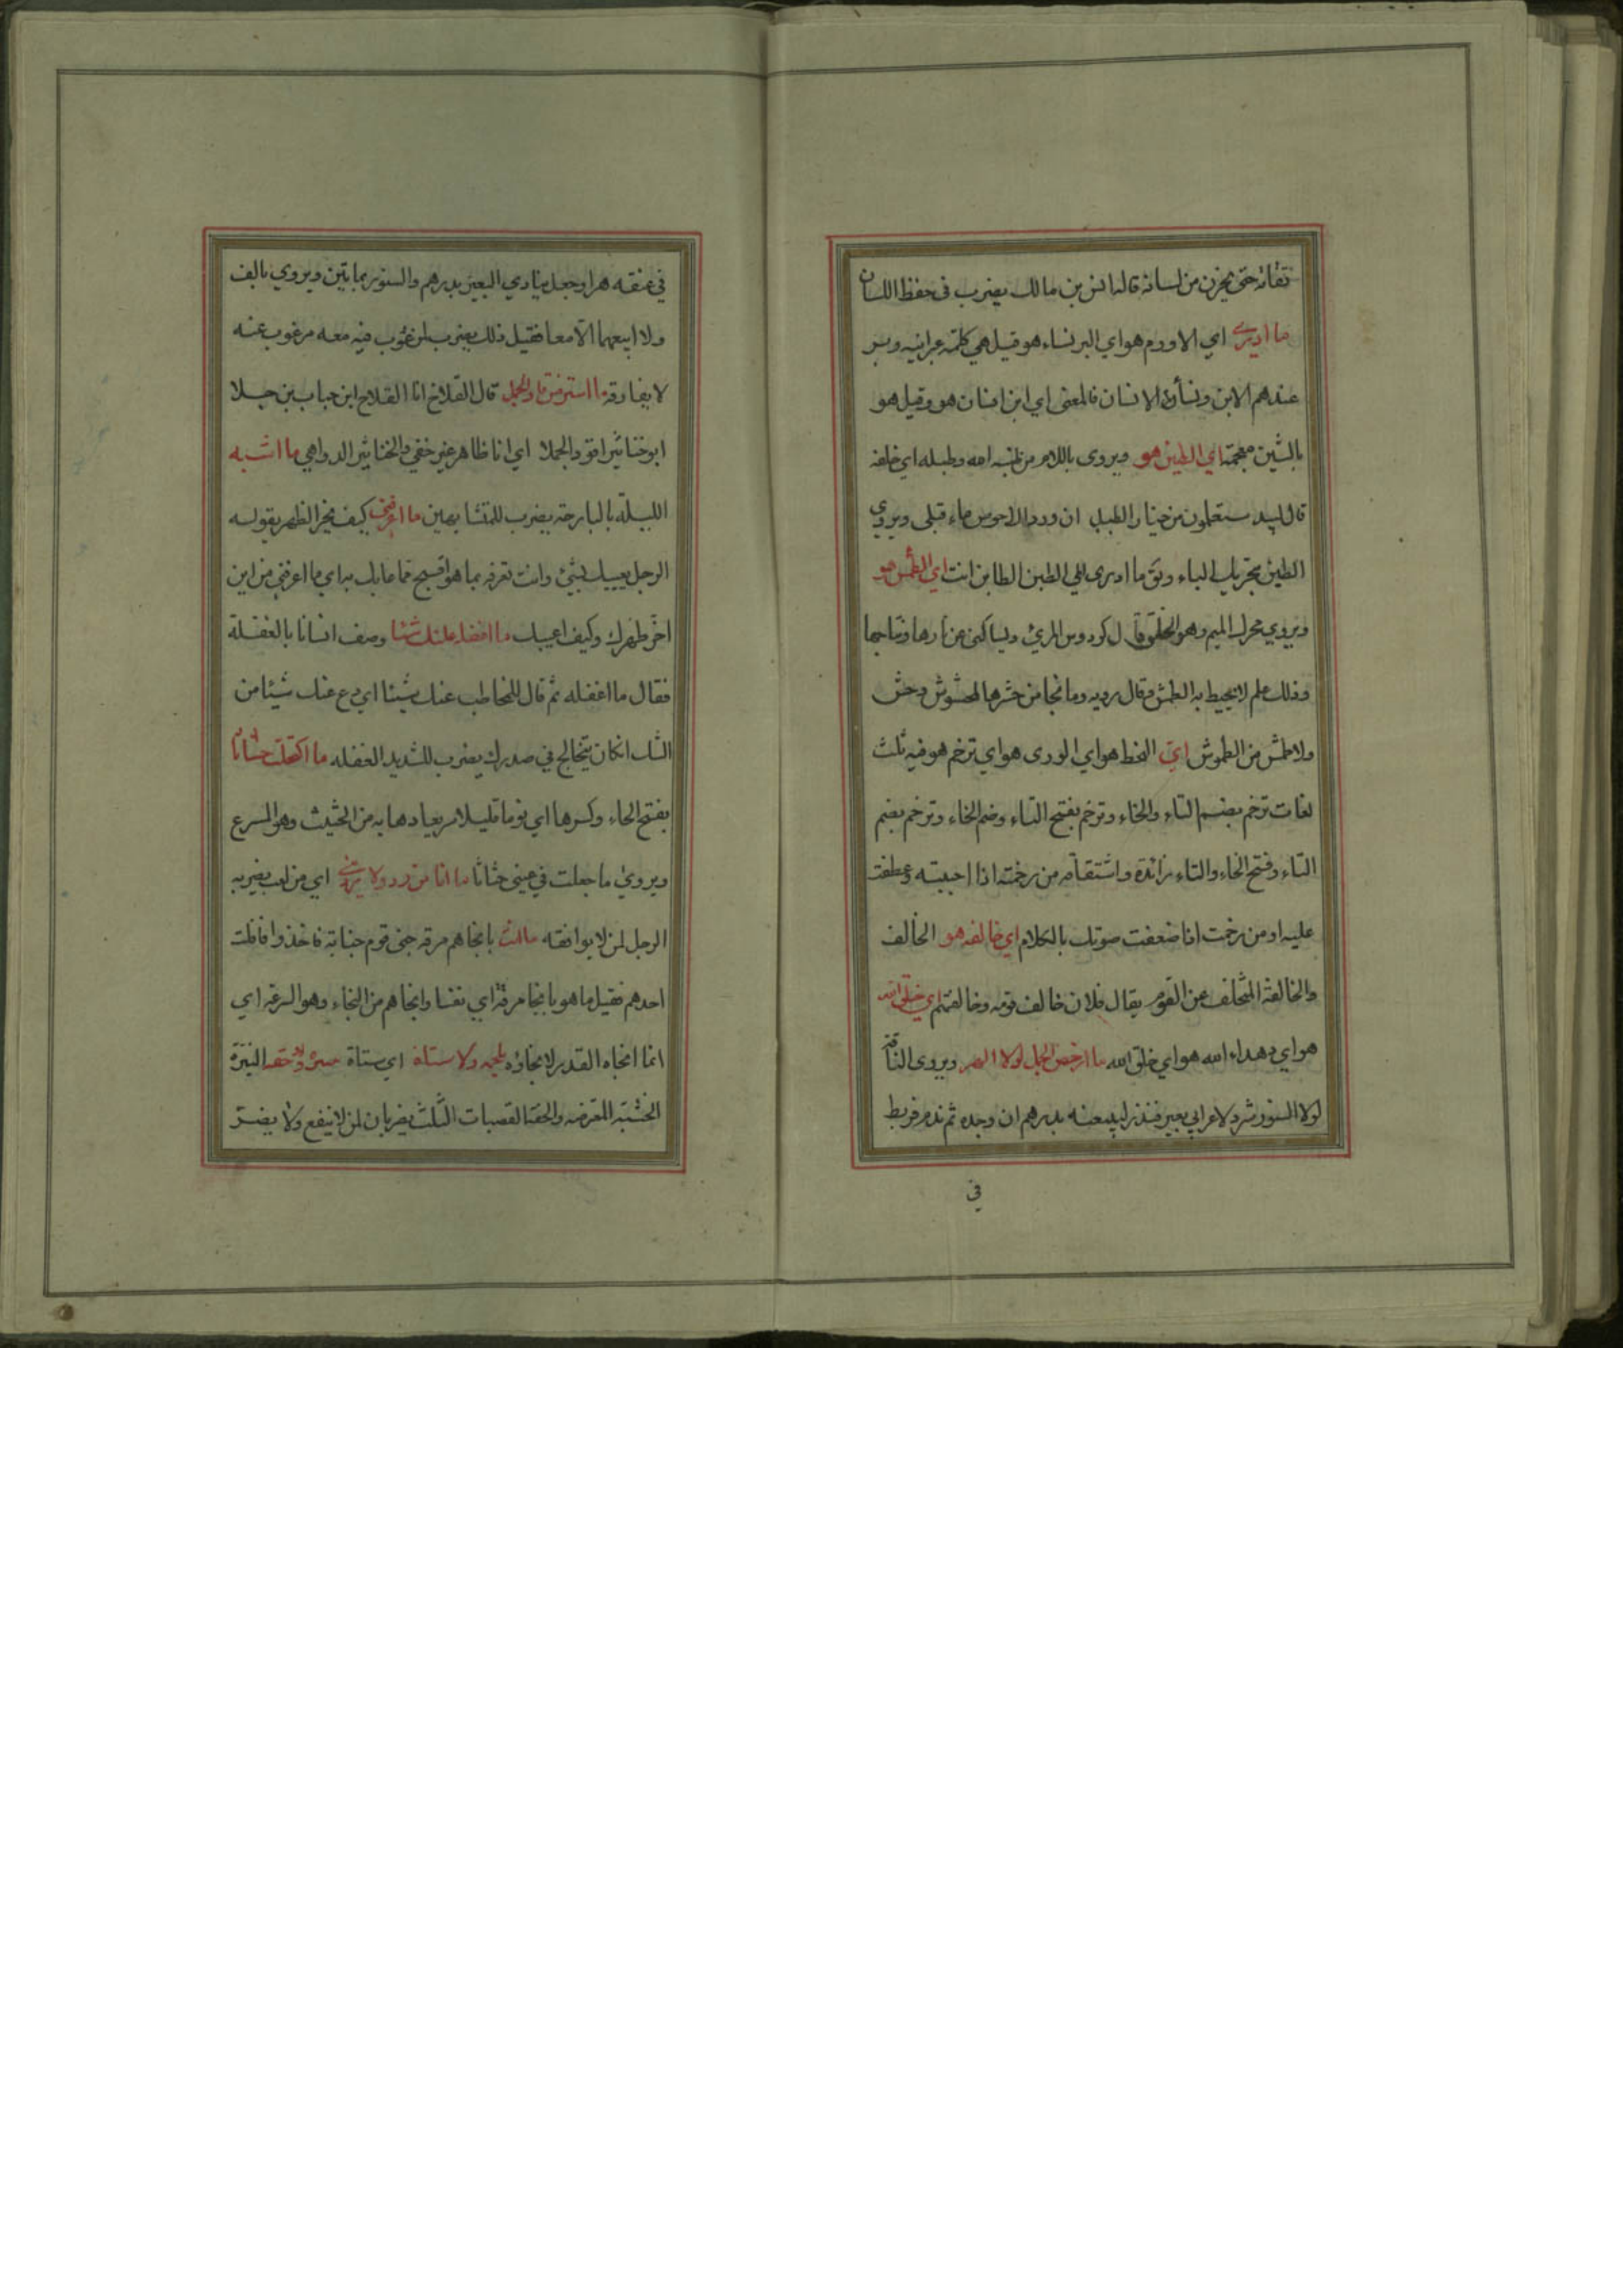 تقاته حتى يخزن من لسانه قاله انس بن مالك يضرب في حفظ اللسان
ما ادري اي الاورم هو اي البرنساء هو قيل هي كلمة عبرانيه وبر
عندهم الابن ونسأ الانسان فالمعنى اي ابن انسان هو وقيل هو
بالشين معجمة اي الطبن هو ويروى باللام من طبنه الله وطبله اي خلقه
قال لبيد ستعلمون من خيار الطبل ان ورد الاحوص ماء قبلى ويروي
الطبن بتحريك الباء ويق ما ادرى اي الطبن الطابن انت اي الطمش هو
ويروي محرك الميم وهو الخلق قال كردوس المري ولسا كنى عن نارها ونتاجها
وذلك علم لا يحيط به الطمش وقال رويه وما نجا من حشرها المحشوش وحش
ولا طمش من الطموش اي النخط هو اي الورى هو اي ترخم هو فيه ثلث
لغات ترخم بضم التاء والخاء وترخم بفتح التاء وضم الخاء وترخم بضم
التاء وفتح الخاء والتاء زائدة واشتقاقه من رخمته اذا احببته وعطفت
عليه او من رخمت اذا ضعفت صوتك بالكلام اي خالفه هو الخالف
والخالفة المتخلف عن القوم يقال فلان خالف قومه وخالفتهم اي خلق الله
هو اي دهداء الله هو اي خلق الله ما ارخص الجمل لولا الهر ويروى الناقة
لولا السنور شرد لاعرابي بعير فنذر ليبيعنه بدرهم ان وجده ثم ندم فربط
في
في عنقه هرا وجعل ينادي البعير بدرهم والسنور بمابتين ويروي بالف
ولا ابيعهما الا معا فقيل ذلك يضرب لمرغوب فيه معه مرغوب عنه
لا يفارقه ما استتر من قاد الجمل قال القلاخ انا القلاخ ابن جناب بن جلا
ابو خناثير اقود الجملا اي انا ظاهر غير خفي والخناثير الدواهي ما اشبه
الليلة بالبارحة يضرب للمتشابهين ما اعرفني كيف يجز الظهر يقوله
الرجل يعيبك بشئ وانت تعرفه بما هو اقبح مما عابك به اي ما اعرفني من اين
اجز ظهرك وكيف اعيبك ما اغفله عنك شيئا وصف انسانا بالغفلة
فقال ما اغفله ثم قال للمخاطب عنك شيئا اي دع عنك شيئا من
الشك انكان يتخالج في صدرك يضرب للشديد الغفله ما اكتحلت حثاثا
بفتح الحاء وكسرها اي نوما قليلا سريعا ذهابه من الحثيث وهو السرع
ويروى ما جعلت في عيني حثاثا ما انا من دد ولا ددي اي من لعب يضربه
الرجل لمن لا يوافقه ما انت بانجاهم مرقه جنى قوم جنابة فاخذوا فافلت
احدهم فقيل ما هو بانجاهم مرقة اي نفسا وانجاهم من النجاء وهو السرعة اي
انما انجاه القدر لا نجاؤه لحمه ولا ستاه اي ستاة نيره ولا حفه النيرة
الخشبة المعترضه والحفة القصبات الثلث يضربان لمن لا ينفع ولا يضر